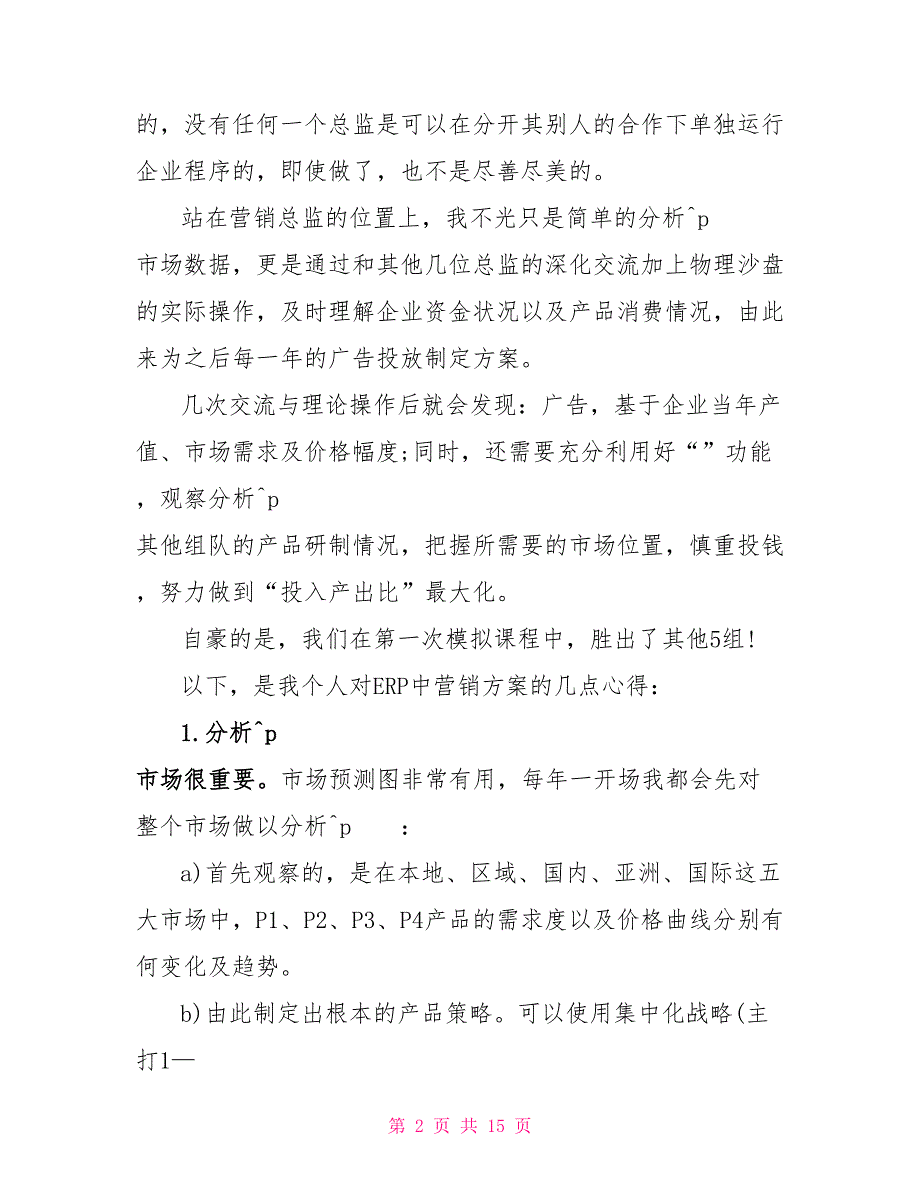 的，没有任何一个总监是可以在分开其别人的合作下单独运行
企业程序的，即使做了，也不是尽善尽美的。
站在营销总监的位置上，我不光只是简单的分析^p
市场数据，更是通过和其他几位总监的深化交流加上物理沙盘
的实际操作，及时理解企业资金状况以及产品消费情况，由此
来为之后每一年的广告投放制定方案。
几次交流与理论操作后就会发现：广告，基于企业当年产
值、市场需求及价格幅度;同时，还需要充分利用好“”功能
，观察分析^p
其他组队的产品研制情况，把握所需要的市场位置，慎重投钱
，努力做到“投入产出比”最大化。
自豪的是，我们在第一次模拟课程中，胜出了其他5组!
以下，是我个人对ERP中营销方案的几点心得：
1.分析^p
市场很重要。市场预测图非常有用，每年一开场我都会先对
整个市场做以分析^p　　：
a)首先观察的，是在本地、区域、国内、亚洲、国际这五
大市场中，P1、P2、P3、P4产品的需求度以及价格曲线分别有
何变化及趋势。
b)由此制定出根本的产品策略。可以使用集中化战略(主
打1—
第 2 页 共 15 页